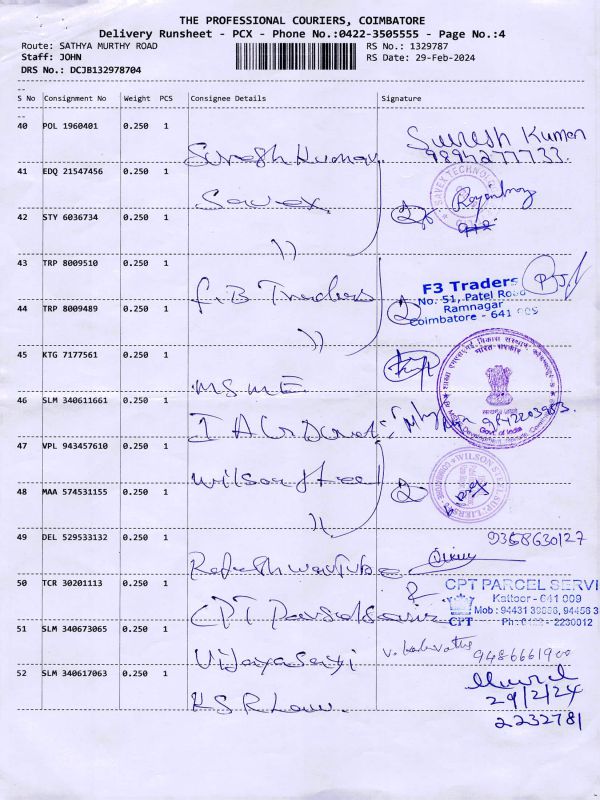 THE PROFESSIONAL COURIERS, COIMBATORE
Delivery Runsheet - PCX - Phone No.:0422-3505555 - Page No.:4
Route: SATHYA MURTHY ROAD RS No.: 1329787
Staff: JOHN RS Date: 29-Feb-2024
DRS No.: DCJB132978704
--
S No Consignment No Weight PCS Consignee Details Signature
--
40 POL 1960401 0.250 1 Suresh Kumar Suresh Kumar
9894277733.
41 EDQ 21547456 0.250 1 Savex
42 STY 6036734 0.250 1 ))
43 TRP 8009510 0.250 1 F.B Traders F3 Traders
No. 51, Patel Road
Ramnagar
Coimbatore - 641 009
44 TRP 8009489 0.250 1 ))
45 KTG 7177561 0.250 1 M S M E
भारत सरकार
सत्यमेव जयते
Govt. of India
46 SLM 340611661 0.250 1
47 VPL 943457610 0.250 1 Wilson Steel
48 MAA 574531155 0.250 1 ))
49 DEL 529533132 0.250 1 9368630127
50 TCR 30201113 0.250 1 CPT Parcel CPT PARCEL SERVI
Kattoor - 641 009
Mob : 94431 38886, 94456 3
CPT Ph: 0422 - 2230012
51 SLM 340673065 0.250 1 Vijaya 9486661900
52 SLM 340617063 0.250 1 K S R Law.
29/2/24
2232781